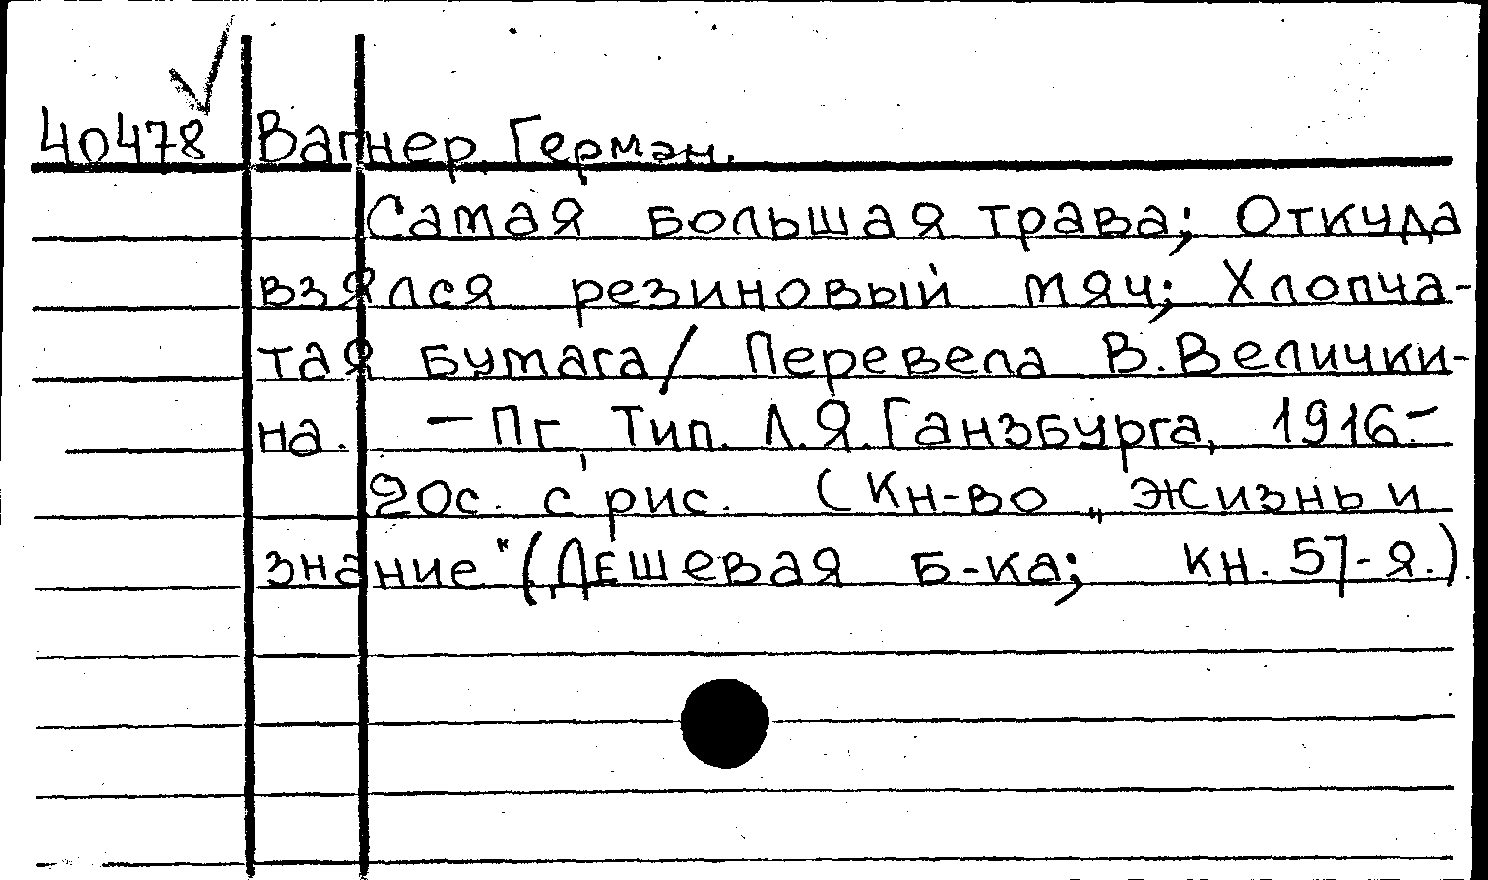 40478 Вагнер, Герман.
Самая большая трава; Откуда
взялся резиновый мяч; Хлопча-
тая бумага/ Перевела В. Велички-
на. - Пг, Тип. Л.Я. Ганзбурга, 1916.-
20с. с рис. (Кн-во „Жизнь и
знание" (Дешевая б-ка; кн. 57-я.)